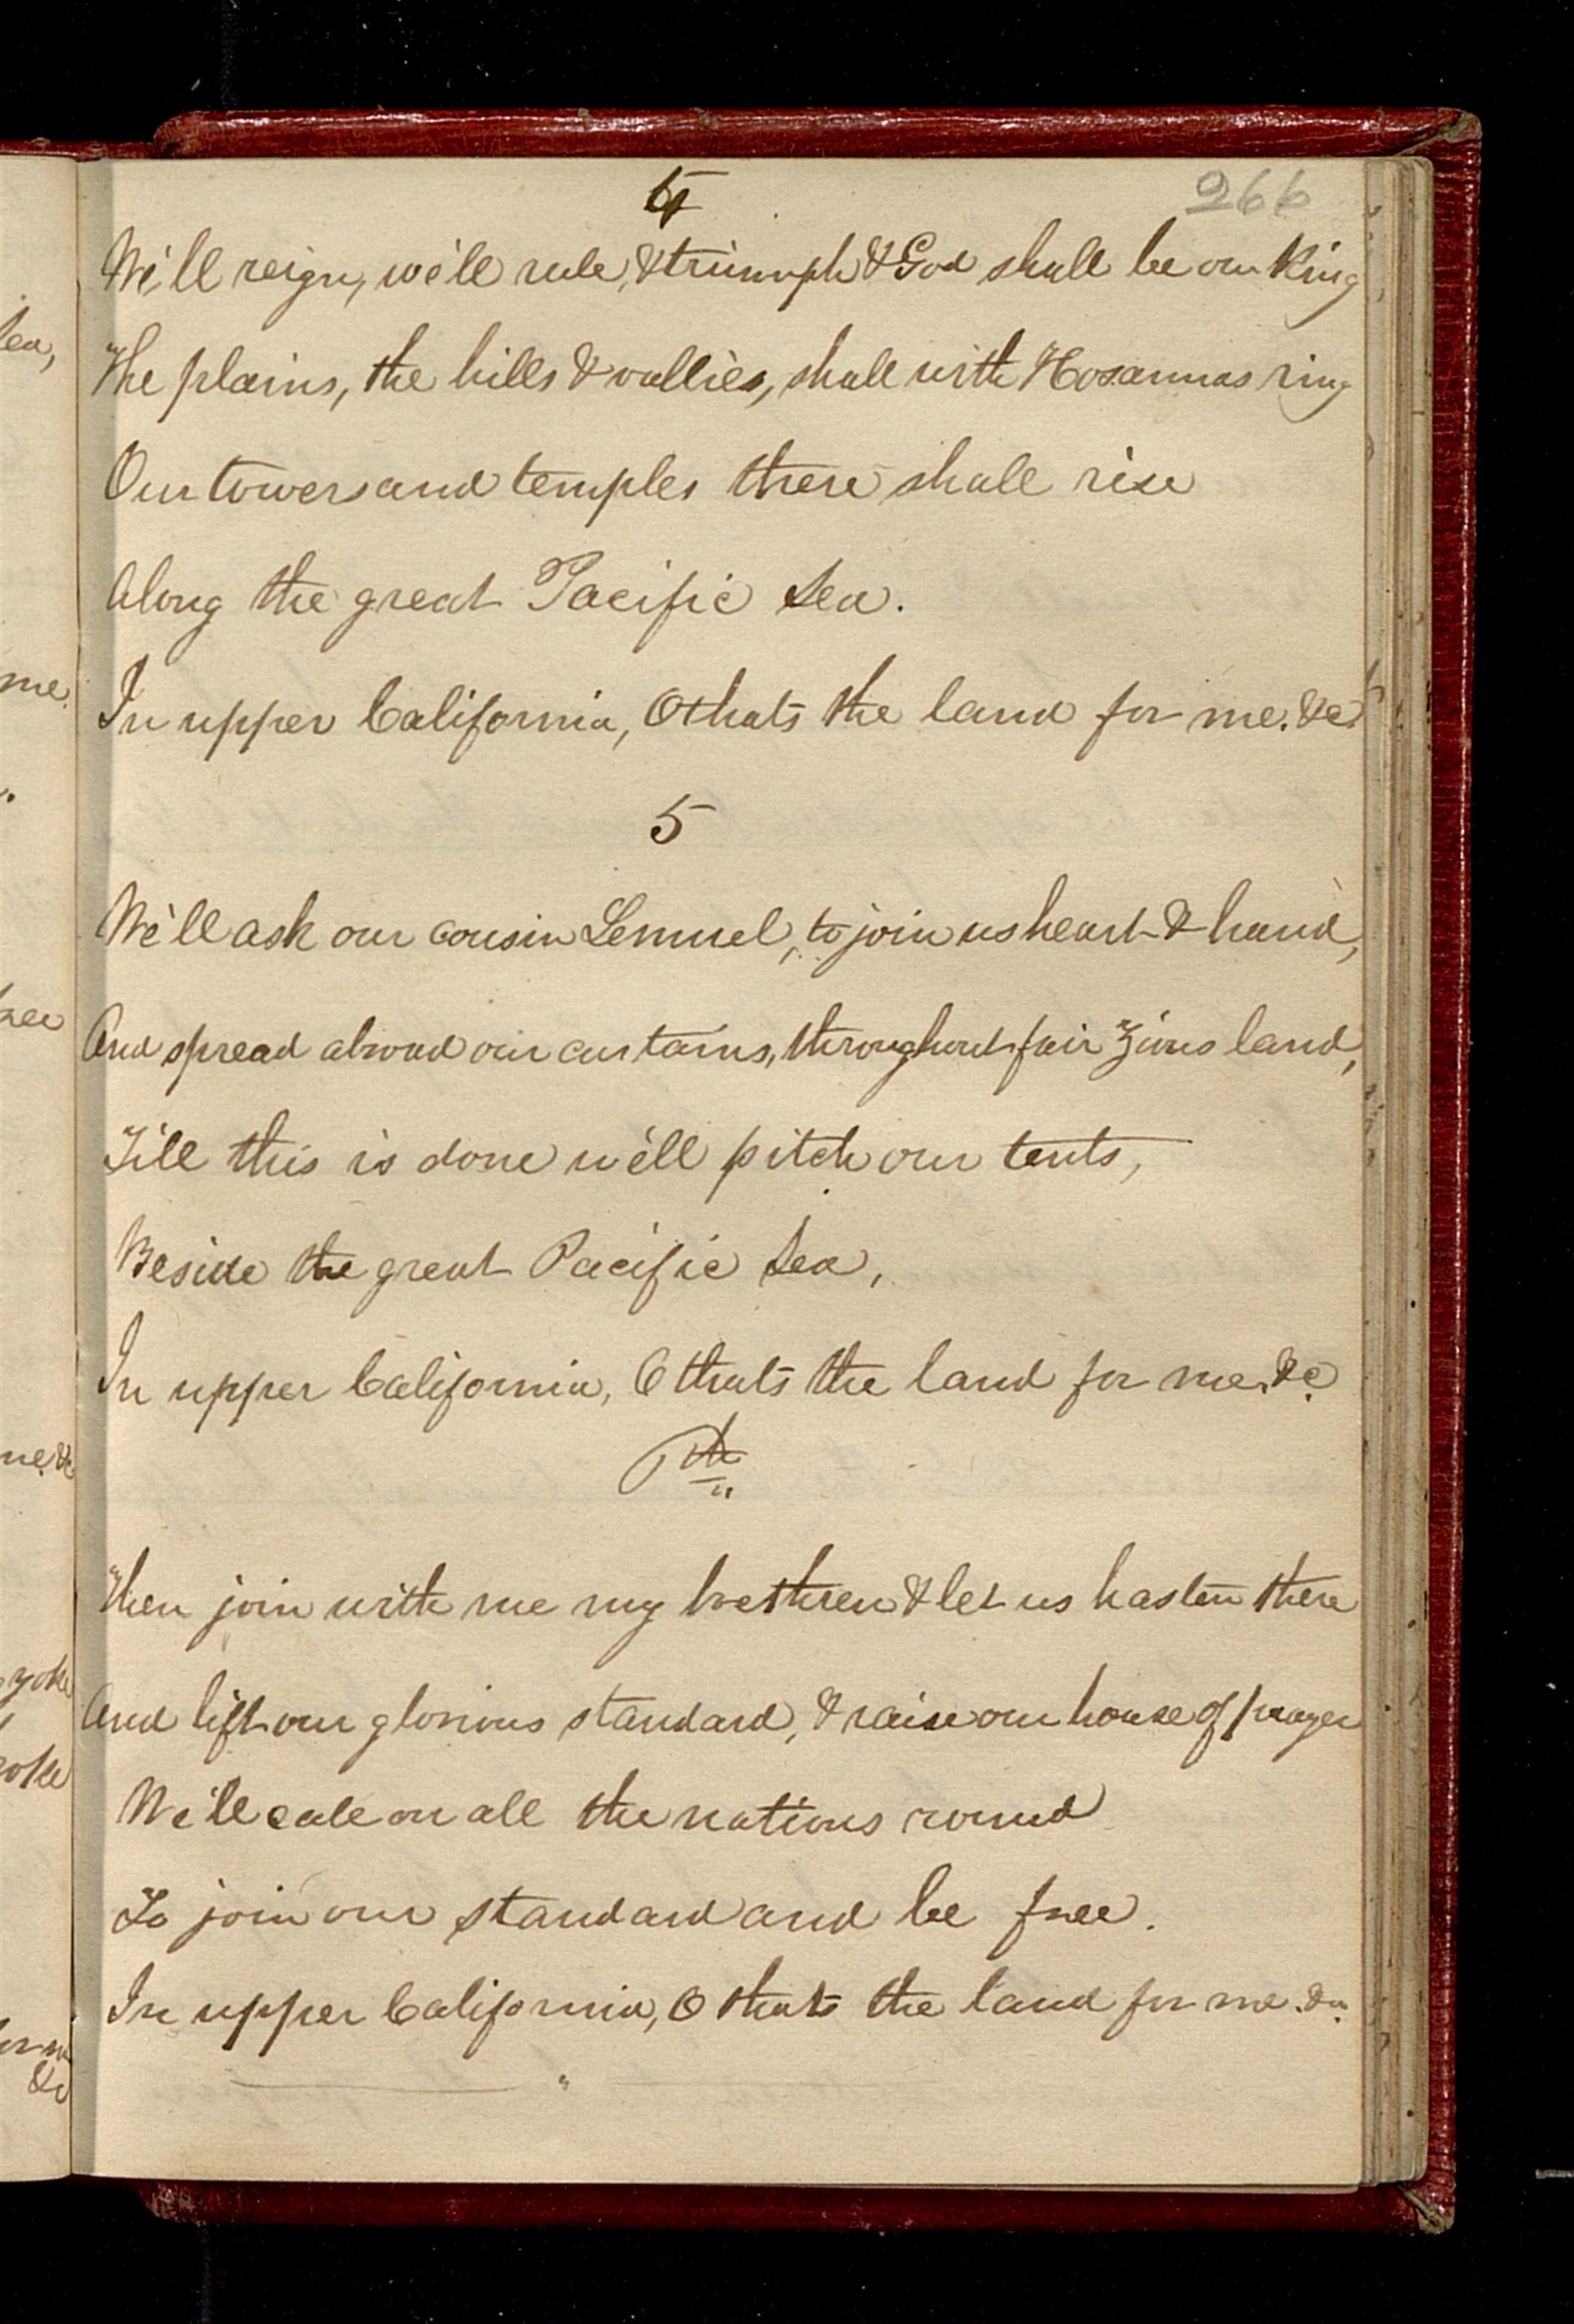 266
4
We'll reign, we'll rule, & triumph & God shall be our King
The plains, the hills & vallies, shall with Hosannas ring
Our towers and temples there shall rise
Along the great Pacific Sea.
In upper California, O thats the land for me. &c
5
We'll ask our cousin Lemuel, to join us heart & hand,
And spread abroad our curtains, throughout fair Zions land,
Till this is done we'll pitch our tents,
Beside the great Pacific Sea,
In upper California, O thats the land for me. &c
6th
Then join with me my brethren & let us hasten there
And lift our glorious standard, & raise our house of prayer
We'll call on all the nations round
To join our standard and be free.
In upper California, O thats the land for me. &c